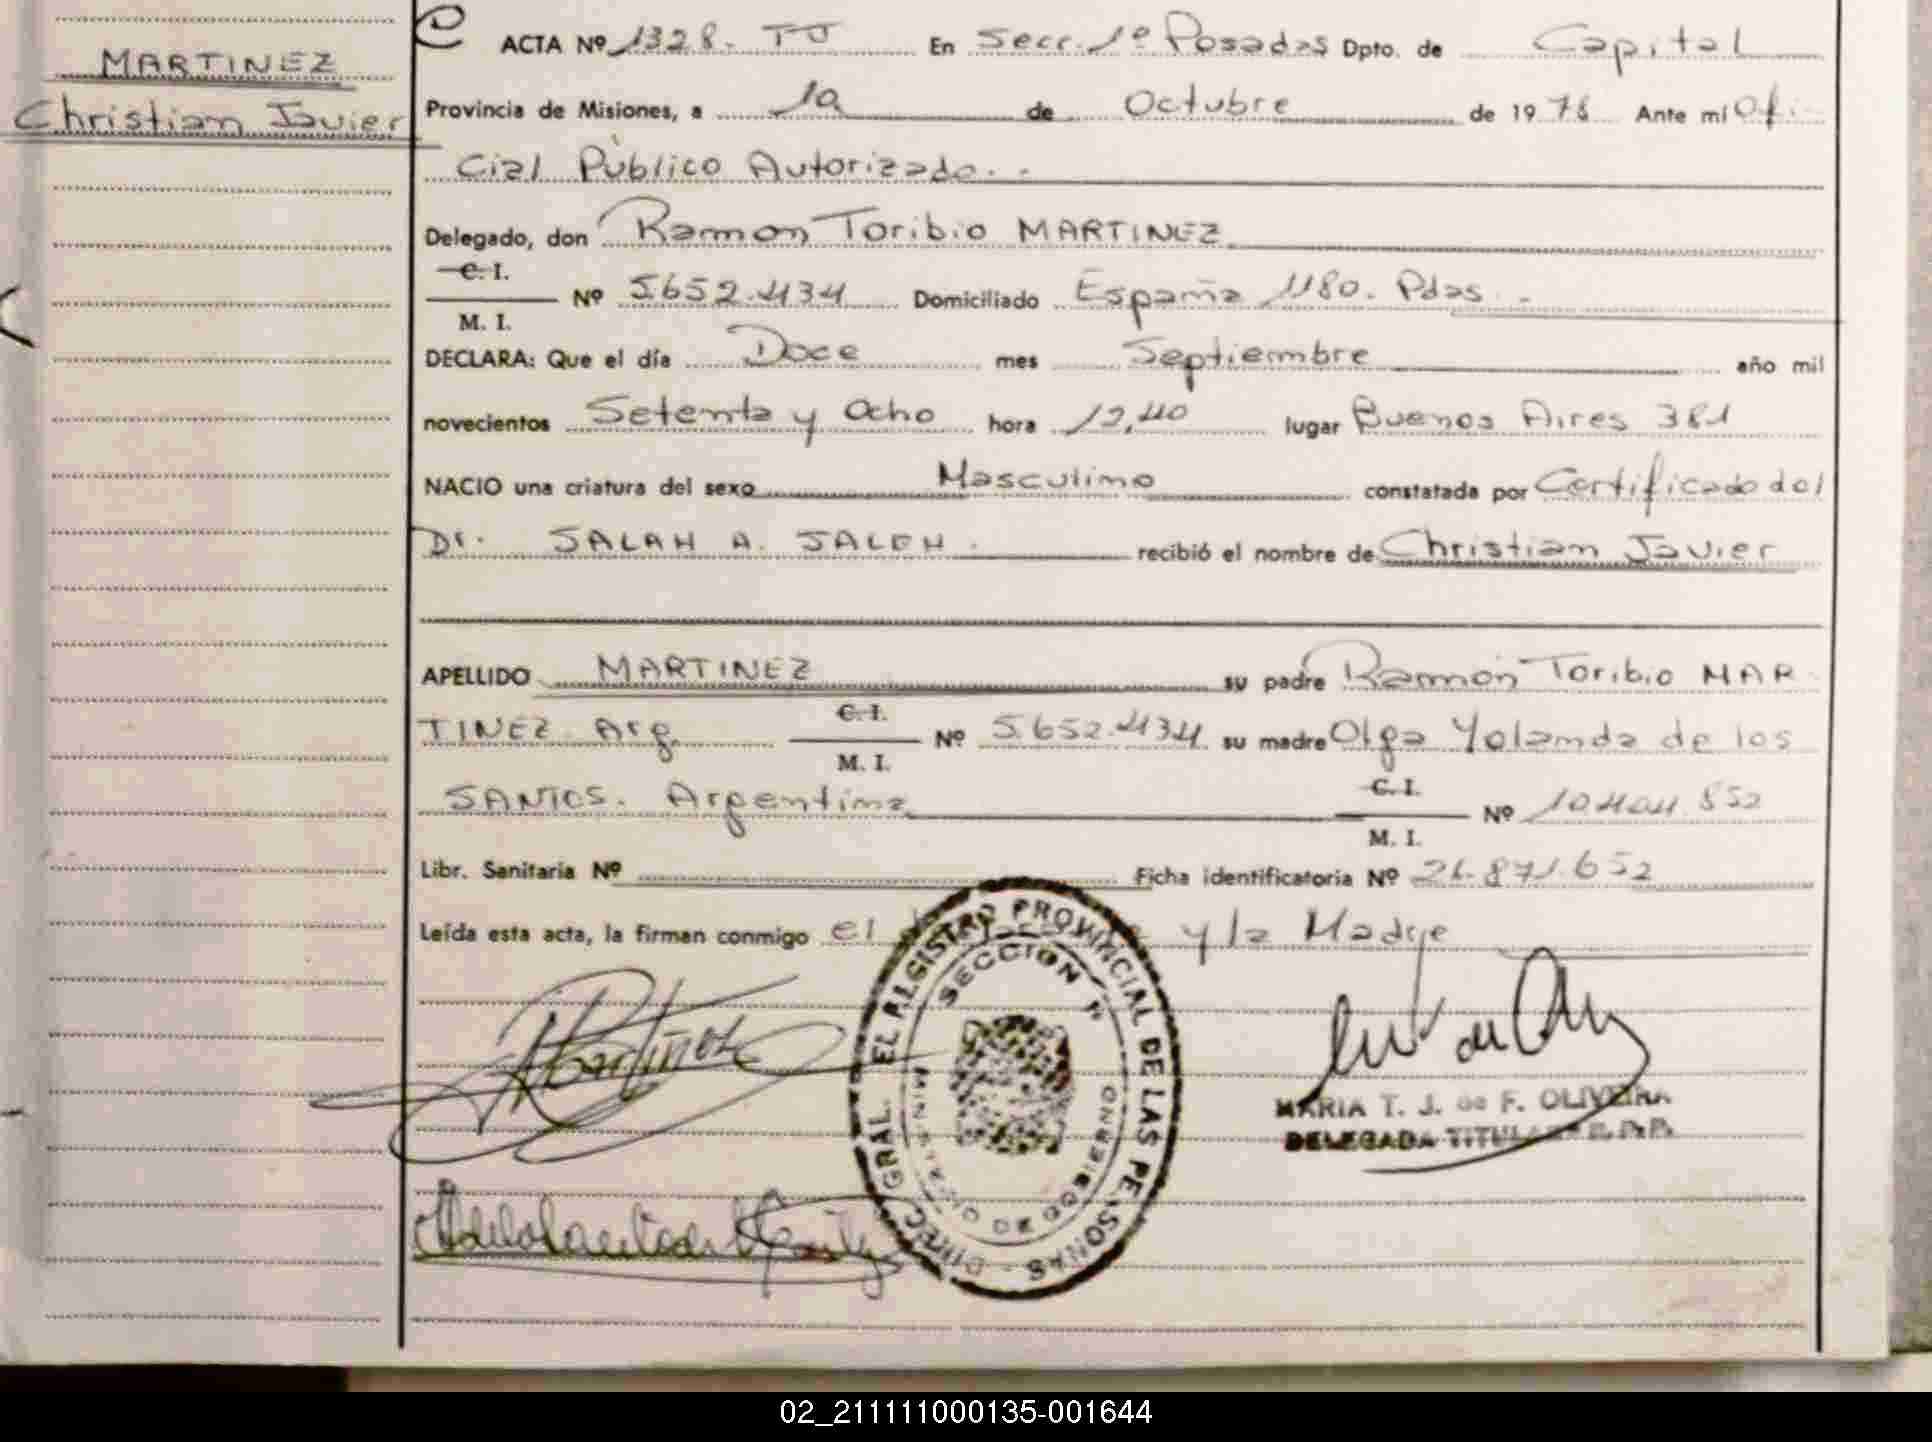 MARTINEZ
Christian Javier
ACTA Nº 1328. TJ En Secc. 1º Posadas Dpto. de Capital
Provincia de Misiones, a de Octubre de 1978 Ante mí Ofi-
cial Público Autorizado.
Delegado, don Ramón Toribio MARTINEZ
C. I.
Nº 5.652.434 Domiciliado España 1180. Pdas.
M. I.
DECLARA: Que el día Doce mes Septiembre año mil
novecientos Setenta y Ocho hora 12,40 lugar Buenos Aires 381
NACIO una criatura del sexo Masculino constatada por Certificado del
Dr. SALAH A. recibió el nombre de Christian Javier
APELLIDO MARTINEZ su padre Ramón Toribio MAR-
TINEZ Arg. C. I. Nº 5.652.434 su madre Olga Yolanda de los
M. I.
SANTOS. Argentina C. I. Nº 10.404.852
M. I.
Libr. Sanitaria Nº Ficha identificatoria Nº 26.871.652
Leída esta acta, la firman conmigo el y la Madre
DIREC. GRAL. EL REGISTRO PROVINCIAL DE LAS PERSONAS
SECCION
MINISTERIO DE GOBIERNO
MARIA T. J. de F. OLIVEIRA
DELEGADA TITULAR R. P. P.
02_211111000135-001644